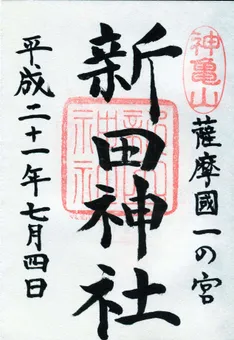 神亀山
薩摩國一の宮
新田神社
平成二十一年七月四日